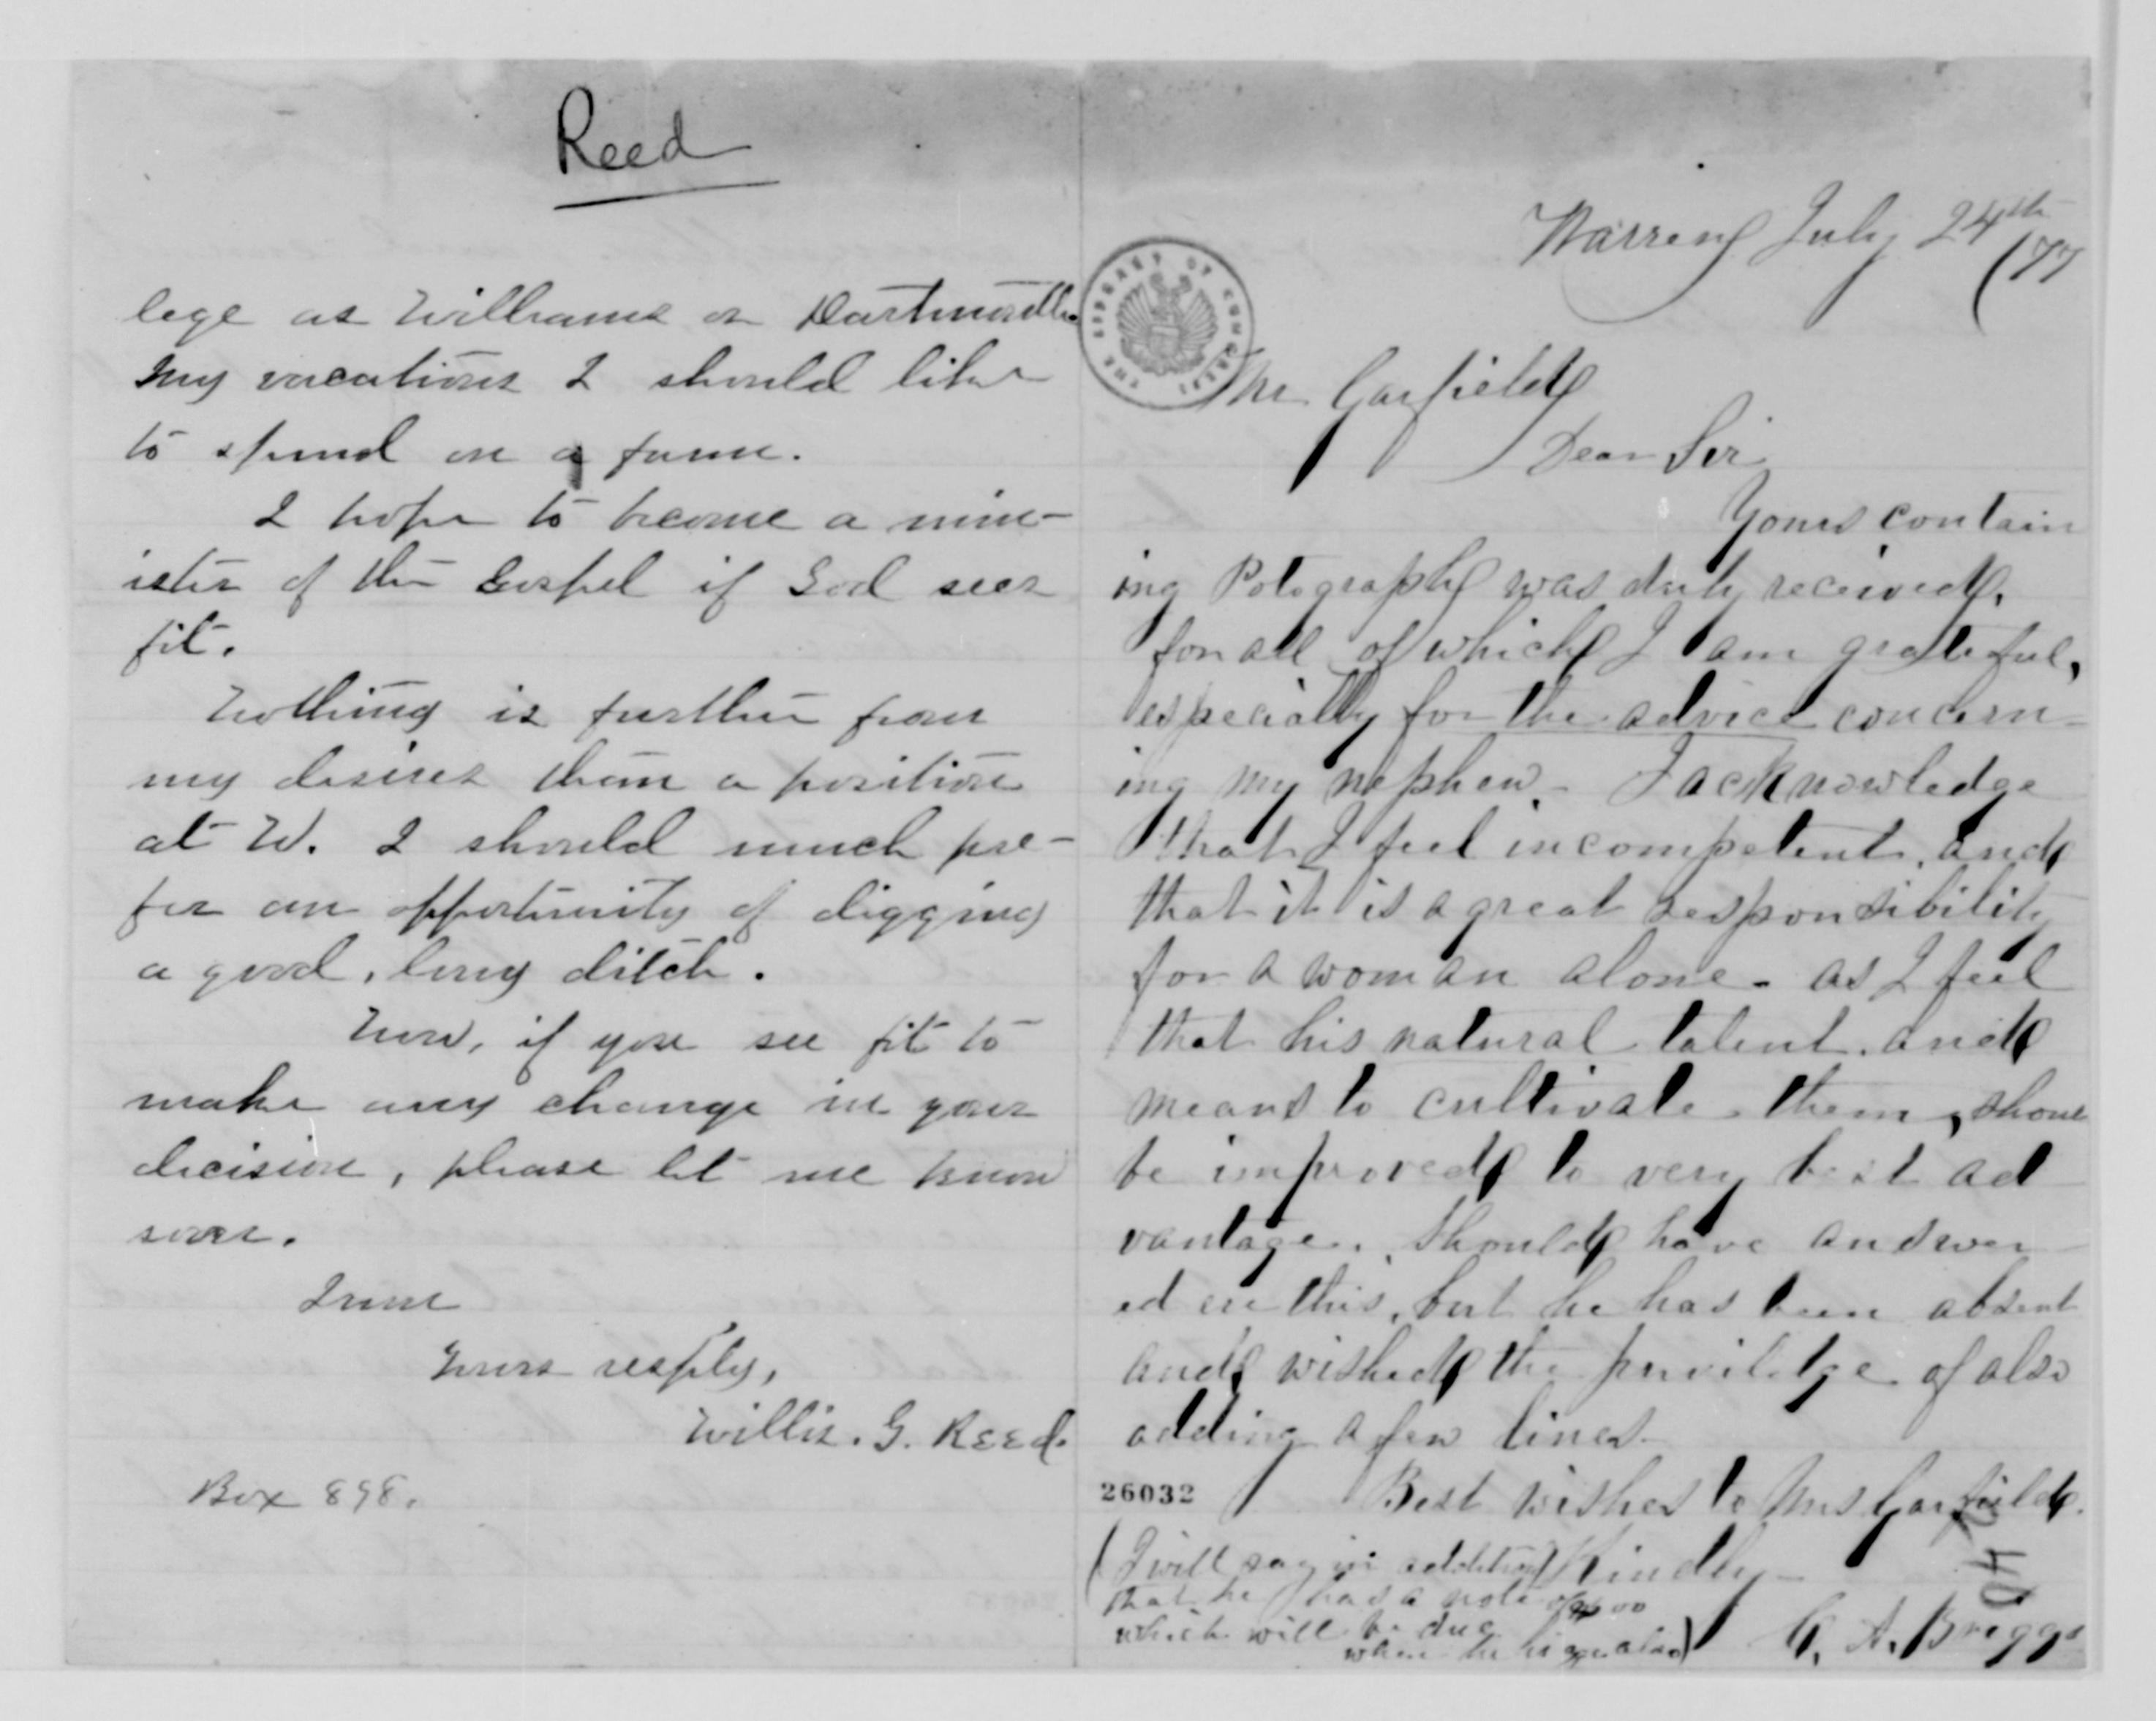 Reed
lege as Williams or Dartmouth.
My vacations I should like
to spend on a farm.
I hope to become a min-
ister of the Gospel if God sees
fit.
Nothing is further from
my desires than a position
at W. I should much pre-
fer an opportunity of digging
a good, long ditch.
Now, if you see fit to
make any change in your
decision, please let me know
soon.
I am
Yours resptly,
Willis. G. Reed.
Box 898.
Warren July 24th
/77
THE LIBRARY OF CONGRESS
Mr Garfield
Dear Sir
Yours contain
ing Potograph was duly received,
for all of which I am grateful,
especially for the advice concern-
ing my nephew. I acknowledge
that I feel incompetent, and
that it is a great responsibility
for a woman alone. as I feel
that his natural talent. and
means to cultivate them, shoul
be improved to very best ad
vantage. Should have answer
ed ere this, but he has been absent
and wished the priviledge of also
adding a few lines.
26032
Best wishes to Mrs Garfield.
(I will say in addition
that he has a note of
which will be due
when he
Kindly
A. Briggs